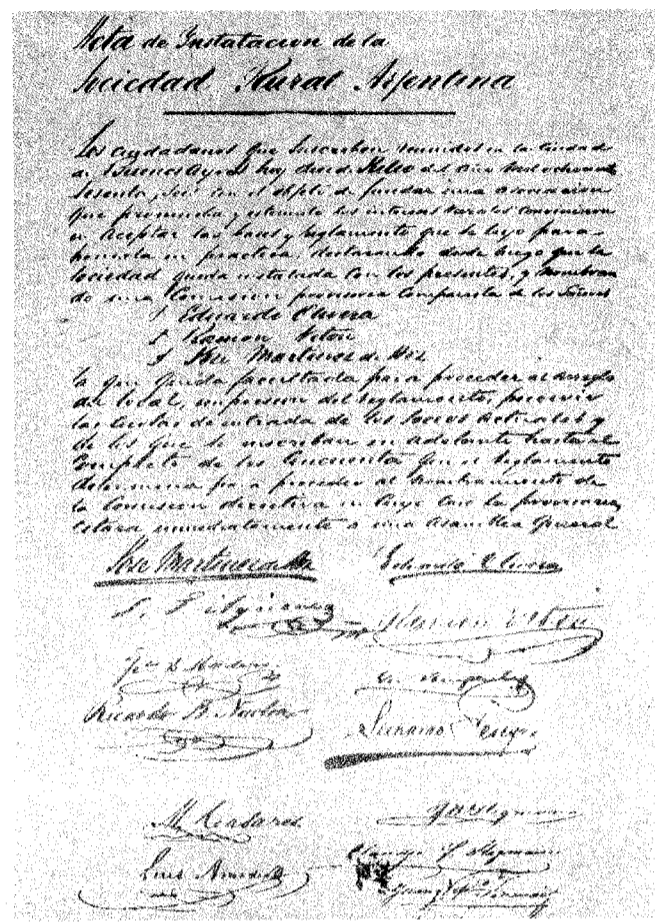 Acta de Instalacion de la
Sociedad Rural Arjentina
Los ciudadanos que Suscriben reunidos en la Ciudad
de Buenos Ayres hoy diez de Julio del año mil ochocientos
Sesenta y Seis con el objeto de fundar una asociacion
que promueba y estimule los intereses rurales convinieron
en Aceptar las bases y Reglamento que se leyo para
ponerla en practica, declarando desde luego que la
Sociedad queda instalada con los presentes, y nombran
do una Comision provisoria Compuesta de los Señores
Eduardo Olivera
Ramon Viton
Jose Martinez de Hoz
la que queda facultada para proceder al arreglo
del local, impresion del reglamento, percivir
las cuotas de entrada de los Socios Actuales y
de los que se inscriban en adelante hasta el
Completo de los Cincuenta que el Reglamento
determina para proceder al nombramiento de
la Comision directiva en cuyo caso la provisoria
citara inmediatamente a una asamblea General
Jose Martinez de Hoz Eduardo Olivera
Ramon Viton
Ricardo B. Newton
Luis Amadeo